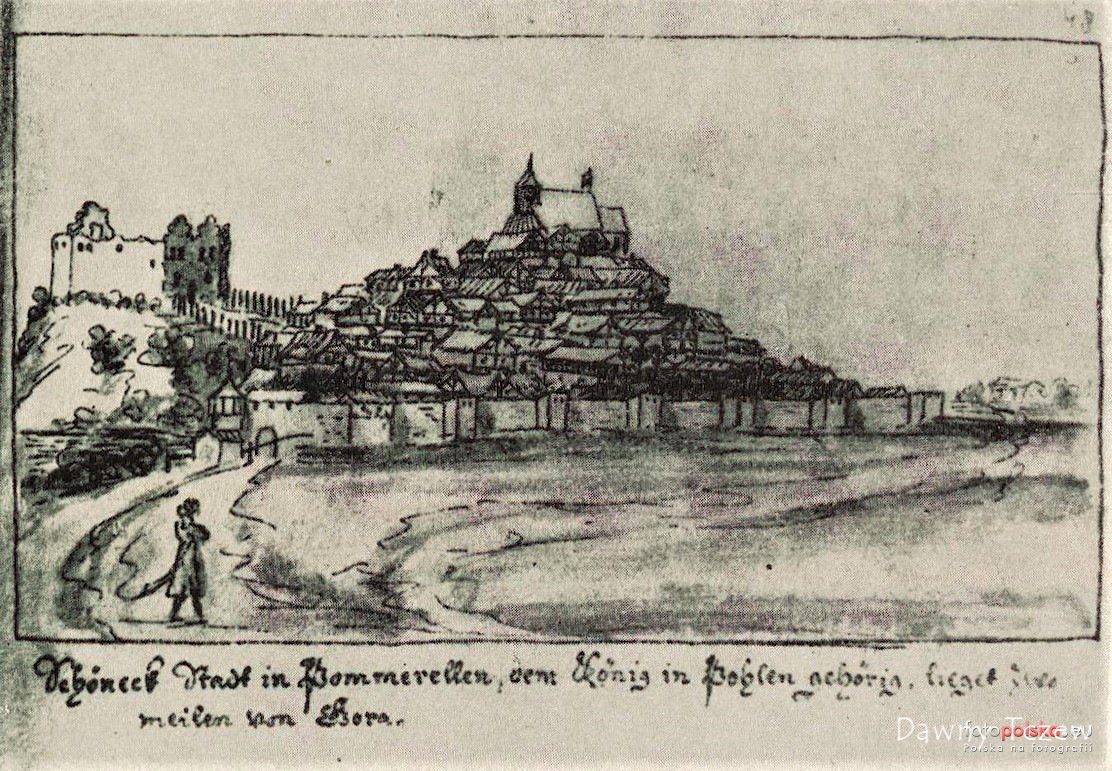 43
Schöneck Stadt in Pommerellen, dem König in Pohlen gehörig, lieget zwo
meilen von Bora.
Dawny Tczew
fotopolska.eu
Polska na fotografii